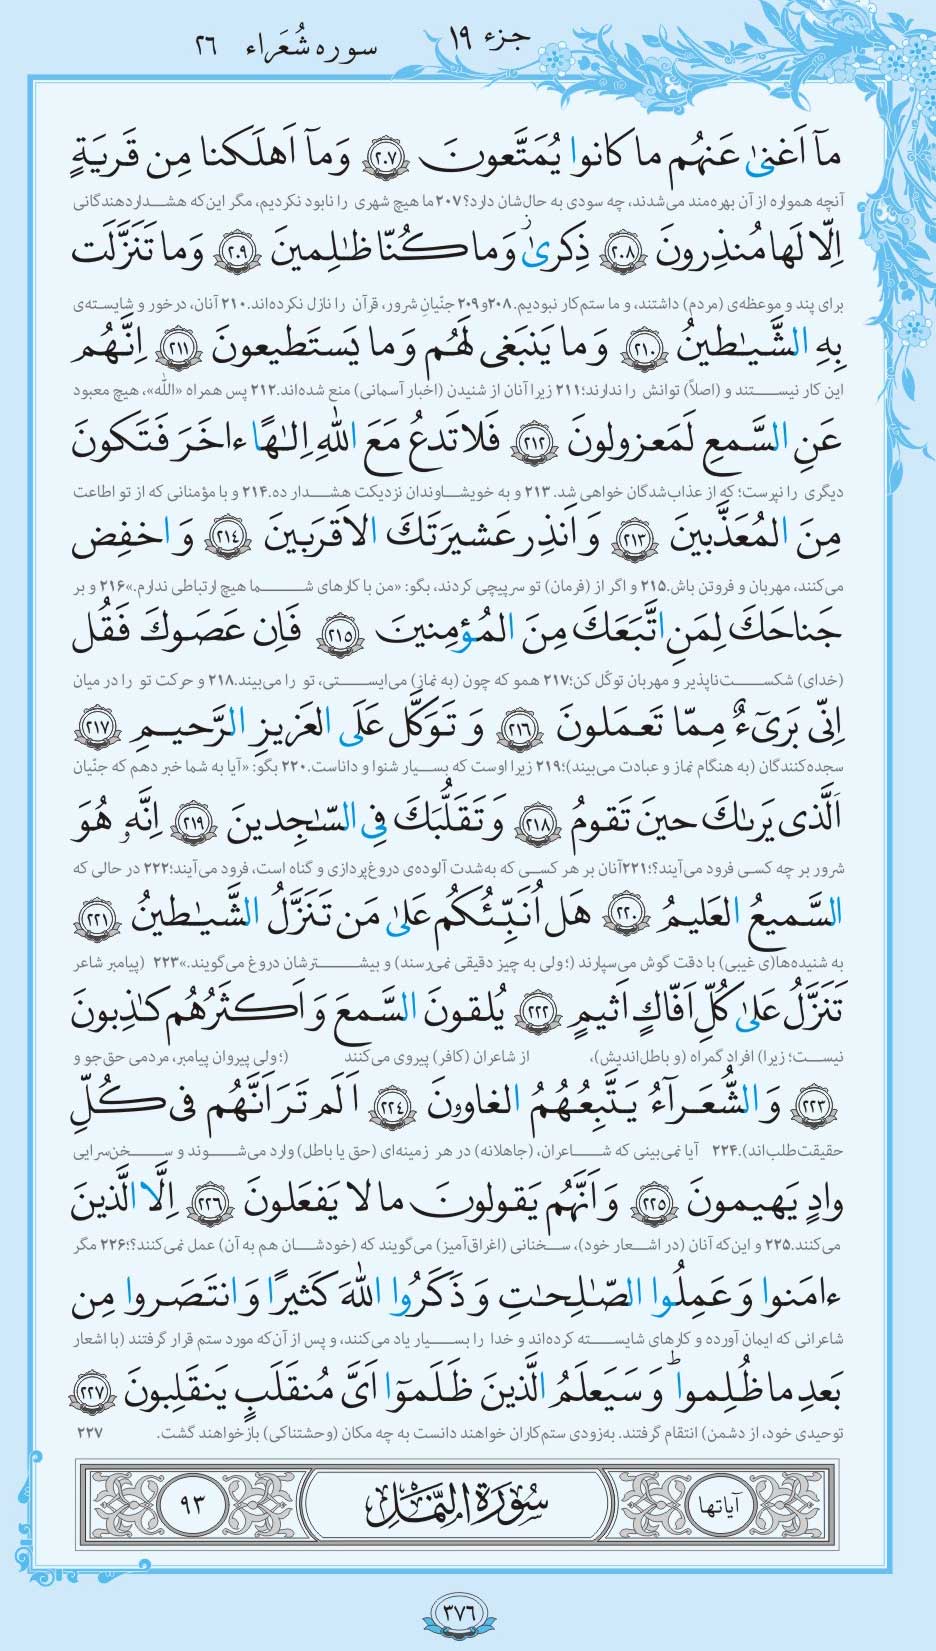 جزء ۱۹ سوره شُعَراء ۲۶
مآ اَغنیٰ عَنهُم ما کانوا یُمَتَّعونَ ﴿۲۰۷﴾ وَ مآ اَهلَکنا مِن قَریَةٍ
آنچه همواره از آن بهره‌مند می‌شدند، چه سودی به حال‌شان دارد؟۲۰۷ ما هیچ شهری را نابود نکردیم، مگر این‌که هشداردهندگانی
اِلّا لَها مُنذِرونَ ﴿۲۰۸﴾ ذِکریٰ وَ ما کُنّا ظٰلِمینَ ﴿۲۰۹﴾ وَ ما تَنَزَّلَت
برای پند و موعظه‌ی (مردم) داشتند، و ما ستم‌کار نبودیم. ۲۰۸و۲۰۹ جنّیانِ شرور، قرآن را نازل نکرده‌اند.۲۱۰ آنان، درخور و شایسته‌ی
بِهِ الشَّیٰطینُ ﴿۲۱۰﴾ وَ ما یَنبَغی لَهُم وَ ما یَستَطیعونَ ﴿۲۱۱﴾ اِنَّهُم
این کار نیستند و (اصلاً) توانش را ندارند؛۲۱۱ زیرا آنان از شنیدن (اخبار آسمانی) منع شده‌اند.۲۱۲ پس همراه «الله»، هیچ معبود
عَنِ السَّمعِ لَمَعزولونَ ﴿۲۱۲﴾ فَلا تَدعُ مَعَ اللهِ اِلٰهًا ءاخَرَ فَتَکونَ
دیگری را نپرست؛ که از عذاب‌شدگان خواهی شد. ۲۱۳ و به خویشاوندان نزدیکت هشدار ده.۲۱۴ و با مؤمنانی که از تو اطاعت
مِنَ المُعَذَّبینَ ﴿۲۱۳﴾ وَ اَنذِر عَشیرَتَكَ الاَقرَبینَ ﴿۲۱۴﴾ وَ اخفِض
می‌کنند، مهربان و فروتن باش.۲۱۵ و اگر از (فرمان) تو سرپیچی کردند، بگو: «من با کارهای شما هیچ ارتباطی ندارم.»۲۱۶ و بر
جَناحَكَ لِمَنِ اتَّبَعَكَ مِنَ المُؤمِنینَ ﴿۲۱۵﴾ فَاِن عَصَوكَ فَقُل
(خدای) شکست‌ناپذیر و مهربان توکّل کن؛۲۱۷ همو که چون (به نماز) می‌ایستی، تو را می‌بیند.۲۱۸ و حرکت تو را در میان
اِنّی بَریٓءٌ مِمّا تَعمَلونَ ﴿۲۱۶﴾ وَ تَوَکَّل عَلَی العَزیزِ الرَّحیمِ ﴿۲۱۷﴾
سجده‌کنندگان (به هنگام نماز و عبادت می‌بیند)؛۲۱۹ زیرا اوست که بسیار شنوا و داناست.۲۲۰ بگو: «آیا به شما خبر دهم که جنّیان
اَلَّذی یَرٮٰكَ حینَ تَقومُ ﴿۲۱۸﴾ وَ تَقَلُّبَكَ فِی السّٰجِدینَ ﴿۲۱۹﴾ اِنَّهٗ هُوَ
شرور بر چه کسی فرود می‌آیند؟!۲۲۱ آنان بر هر کسی که به‌شدت آلوده‌ی دروغ‌پردازی و گناه است، فرود می‌آیند؛۲۲۲ در حالی که
السَّمیعُ العَلیمُ ﴿۲۲۰﴾ هَل اُنَبِّئُکُم عَلیٰ مَن تَنَزَّلُ الشَّیٰطینُ ﴿۲۲۱﴾
به شنیده‌ها(ی غیبی) با دقت گوش می‌سپارند (؛ ولی به چیز دقیقی نمی‌رسند) و بیشترشان دروغ می‌گویند.»۲۲۳ (پیامبر شاعر
تَنَزَّلُ عَلیٰ کُلِّ اَفّاكٍ اَثیمٍ ﴿۲۲۲﴾ یُلقونَ السَّمعَ وَ اَکثَرُهُم کٰذِبونَ
نیست؛ زیرا) افراد گمراه (و باطل‌اندیش)، از شاعران (کافر) پیروی می‌کنند (؛ ولی پیروان پیامبر، مردمی حق‌جو و
﴿۲۲۳﴾ وَ الشُّعَرآءُ یَتَّبِعُهُمُ الغاوۥنَ ﴿۲۲۴﴾ اَلَم تَرَ اَنَّهُم فی کُلِّ
حقیقت‌طلب‌اند).۲۲۴ آیا نمی‌بینی که شاعران، (جاهلانه) در هر زمینه‌ای (حق یا باطل) وارد می‌شوند و سخن‌سرایی
وادٍ یَهیمونَ ﴿۲۲۵﴾ وَ اَنَّهُم یَقولونَ ما لا یَفعَلونَ ﴿۲۲۶﴾ اِلَّا الَّذینَ
می‌کنند.۲۲۵ و این‌که آنان (در اشعار خود)، سخنانی (اغراق‌آمیز) می‌گویند که (خودشان هم به آن) عمل نمی‌کنند؟!؛۲۲۶ مگر
ءامَنوا وَ عَمِلُوا الصّٰلِحٰتِ وَ ذَکَرُوا اللهَ کَثیرًا وَ انتَصَروا مِن
شاعرانی که ایمان آورده و کارهای شایسته کرده‌اند و خدا را بسیار یاد می‌کنند، و پس از آن‌که مورد ستم قرار گرفتند (با اشعار
بَعدِ ما ظُلِموا ؕ وَ سَیَعلَمُ الَّذینَ ظَلَموٓا اَیَّ مُنقَلَبٍ یَنقَلِبونَ ﴿۲۲۷﴾
توحیدی خود، از دشمن) انتقام گرفتند. به‌زودی ستم‌کاران خواهند دانست به چه مکان (وحشتناکی) بازخواهند گشت. ۲۲۷
آیاتها سُورَةُ النَّمل ۹۳
۳۷۶